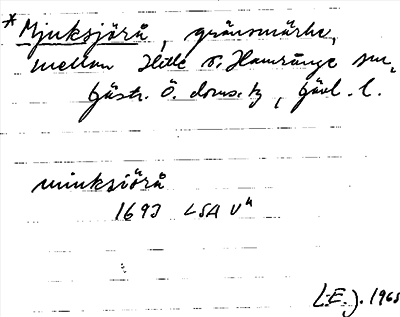 * Mjuksjörå, gränsmärke,
mellan Hille o. Hamrånge snr,
Gästr. Ö. doms. hd, Gävl. l.
miuksiörå
1693 LSA V 4
L.E.J. 1965